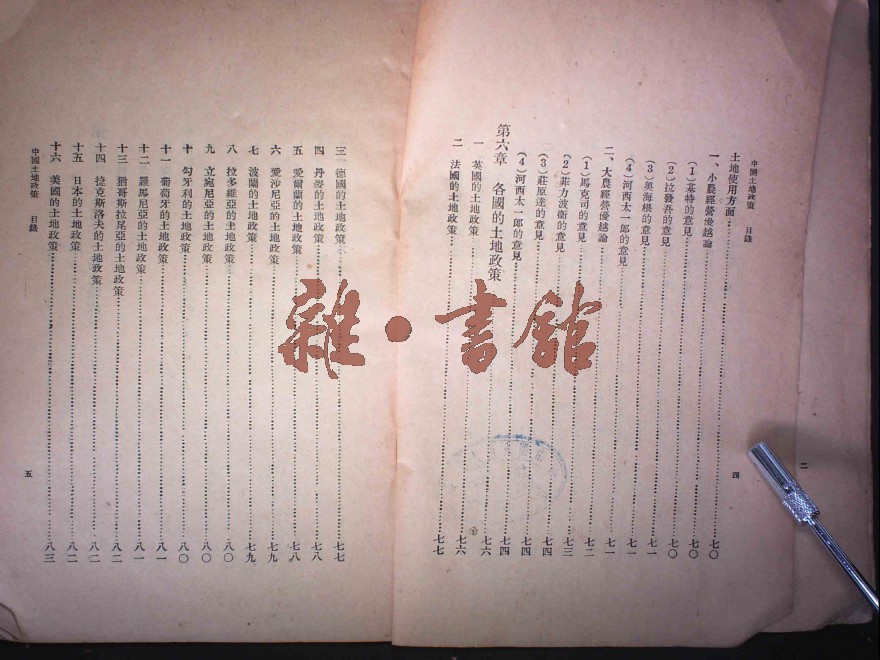 中國土地政策 目錄
四
土地使用方面
一、小農經營優越論……七〇
(1)基特的意見……七〇
(2)拉發吾的意見……七〇
(3)奧海根的意見……七一
(4)河西太一郎的意見……七一
二、大農經營優越論……七一
(1)馬克司的意見……七二
(2)菲力波衛的意見……七三
(3)莊原達的意見……七四
(4)河西太一郎的意見……七四
第六章 各國的土地政策……七四
一 英國的土地政策……七六
二 法國的土地政策……七六
七七
三 德國的土地政策……七七
四 丹麥的土地政策……七八
五 愛爾蘭的土地政策……七八
六 愛沙尼亞的土地政策……七九
七 波蘭的土地政策……七九
八 拉多維亞的土地政策……八〇
九 立宛尼亞的土地政策……八〇
十 匈牙利的土地政策……八〇
十一 葡萄牙的土地政策……八一
十二 羅馬尼亞的土地政策……八一
十三 猶哥斯拉尾亞的土地政策……八二
十四 拉克斯洛夫的土地政策……八二
十五 日本的土地政策……八二
十六 美國的土地政策……八三
中國土地政策 目錄
五
二
雜·書館